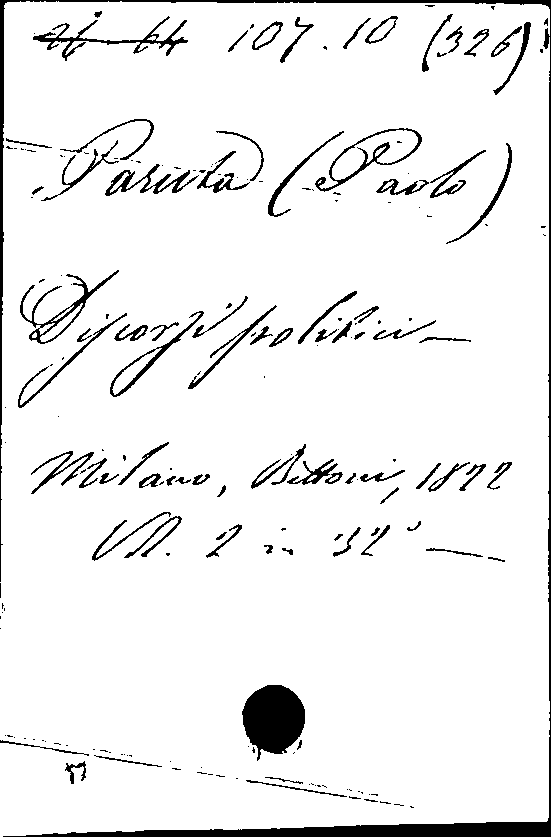 26 64 107.10 (326)
Paruta (Paolo)
Discorsi politici —
Milano, Bettoni, 1822
Vol. 2 in 32° —